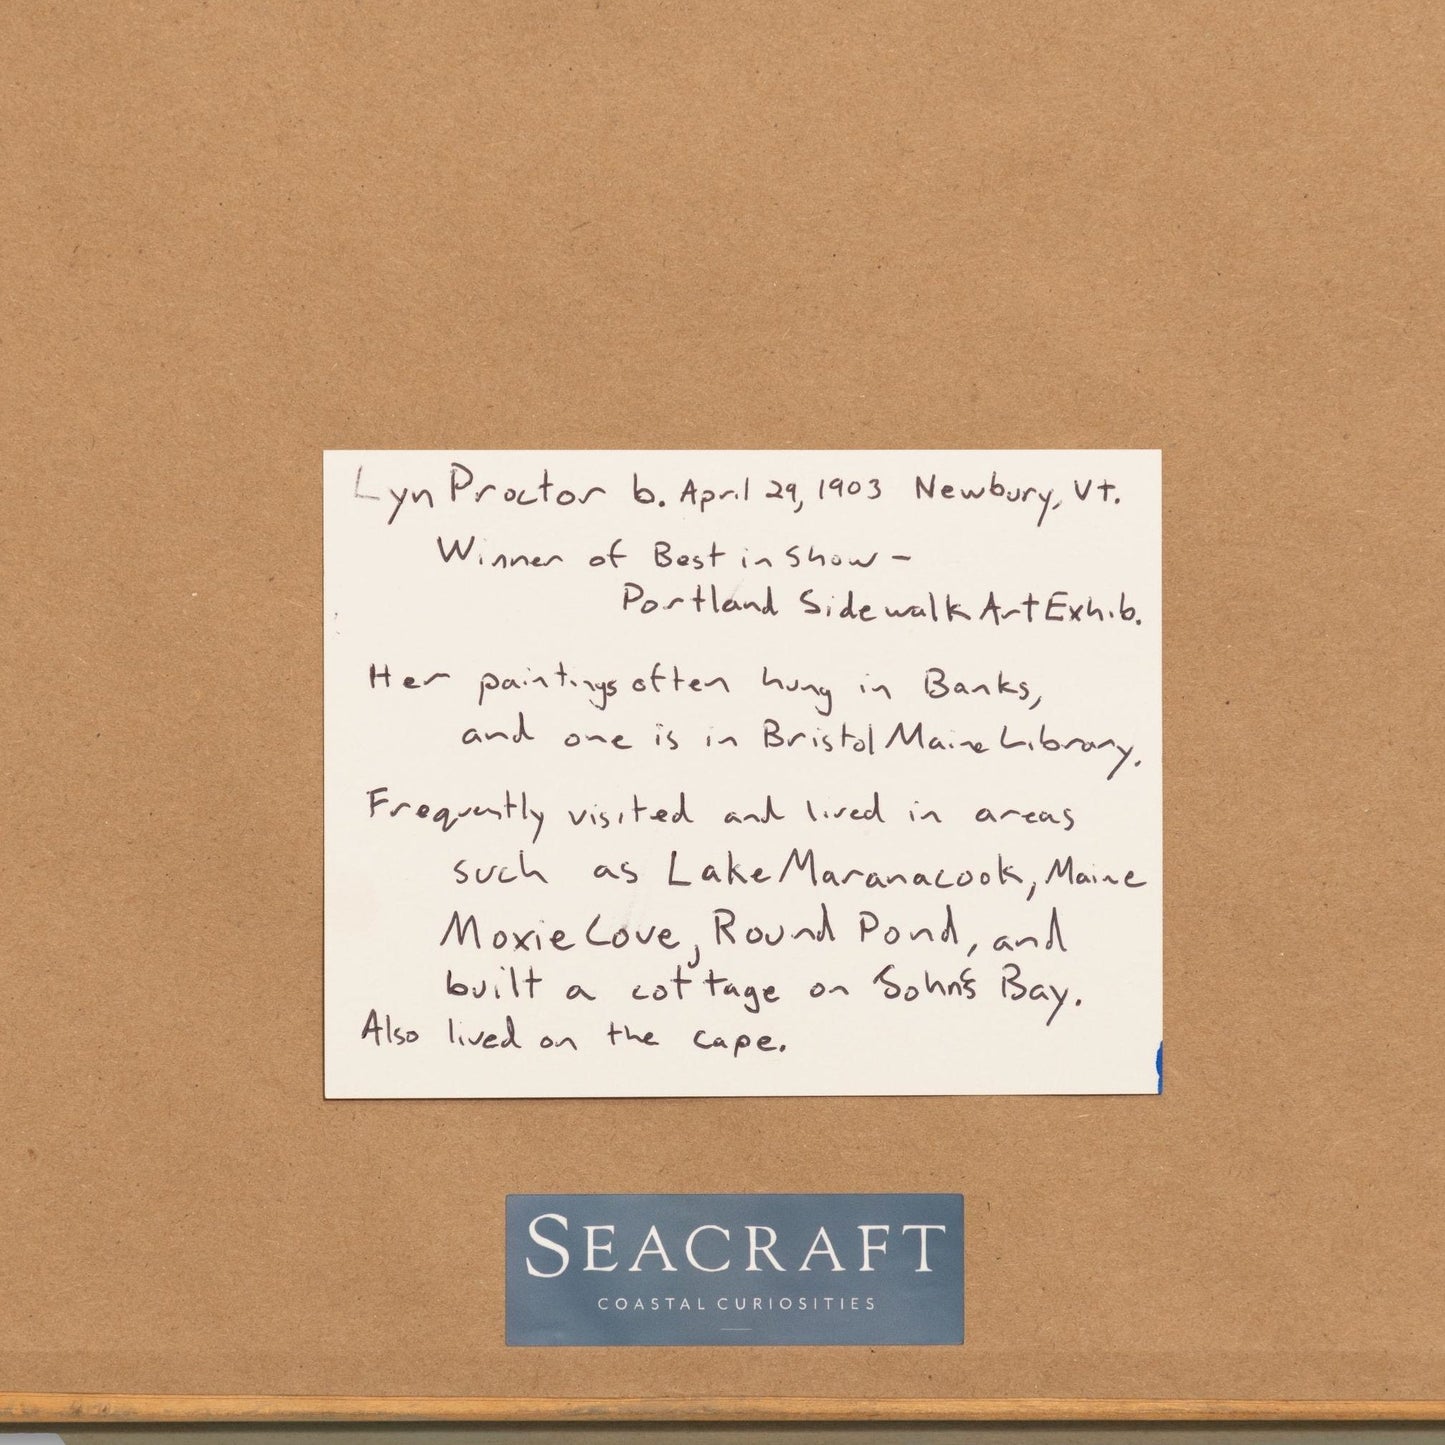 Lyn Proctor b. April 29, 1903 Newbury, Vt.
Winner of Best in Show -
Portland Sidewalk Art Exhib.
Her paintings often hung in Banks,
and one is in Bristol Maine Library.
Frequently visited and lived in areas
such as Lake Maranacook, Maine
Moxie Cove, Round Pond, and
built a cottage on John's Bay.
Also lived on the cape.
SEACRAFT
COASTAL CURIOSITIES